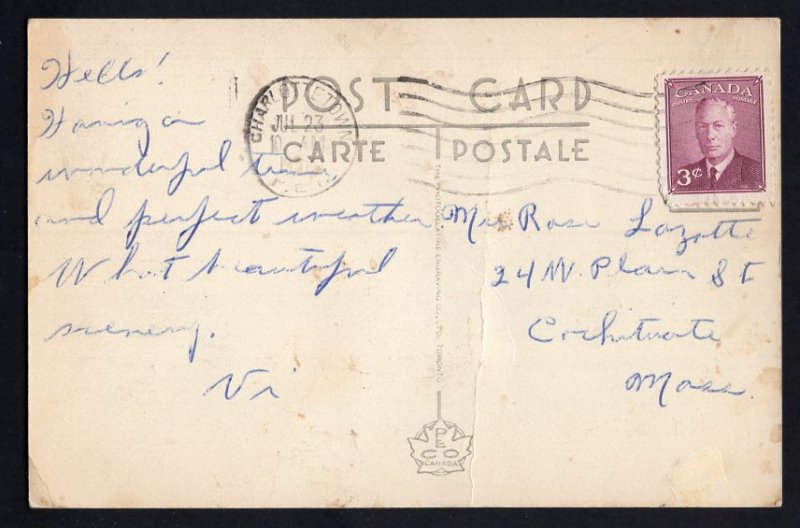 POST CARD
CARTE POSTALE
CHARLOTTETOWN
JUL 23
P.E.I.
CANADA
POSTES POSTAGE
3¢
Hello!
Having a
wonderful time
and perfect weather
What beautiful
scenery.
Vi
Mrs Rose Lazotte
24 N. Plain St
Cochituate
Mass.
THE PHOTOGELATINE ENGRAVING CO., LTD. TORONTO
PECO
CANADA